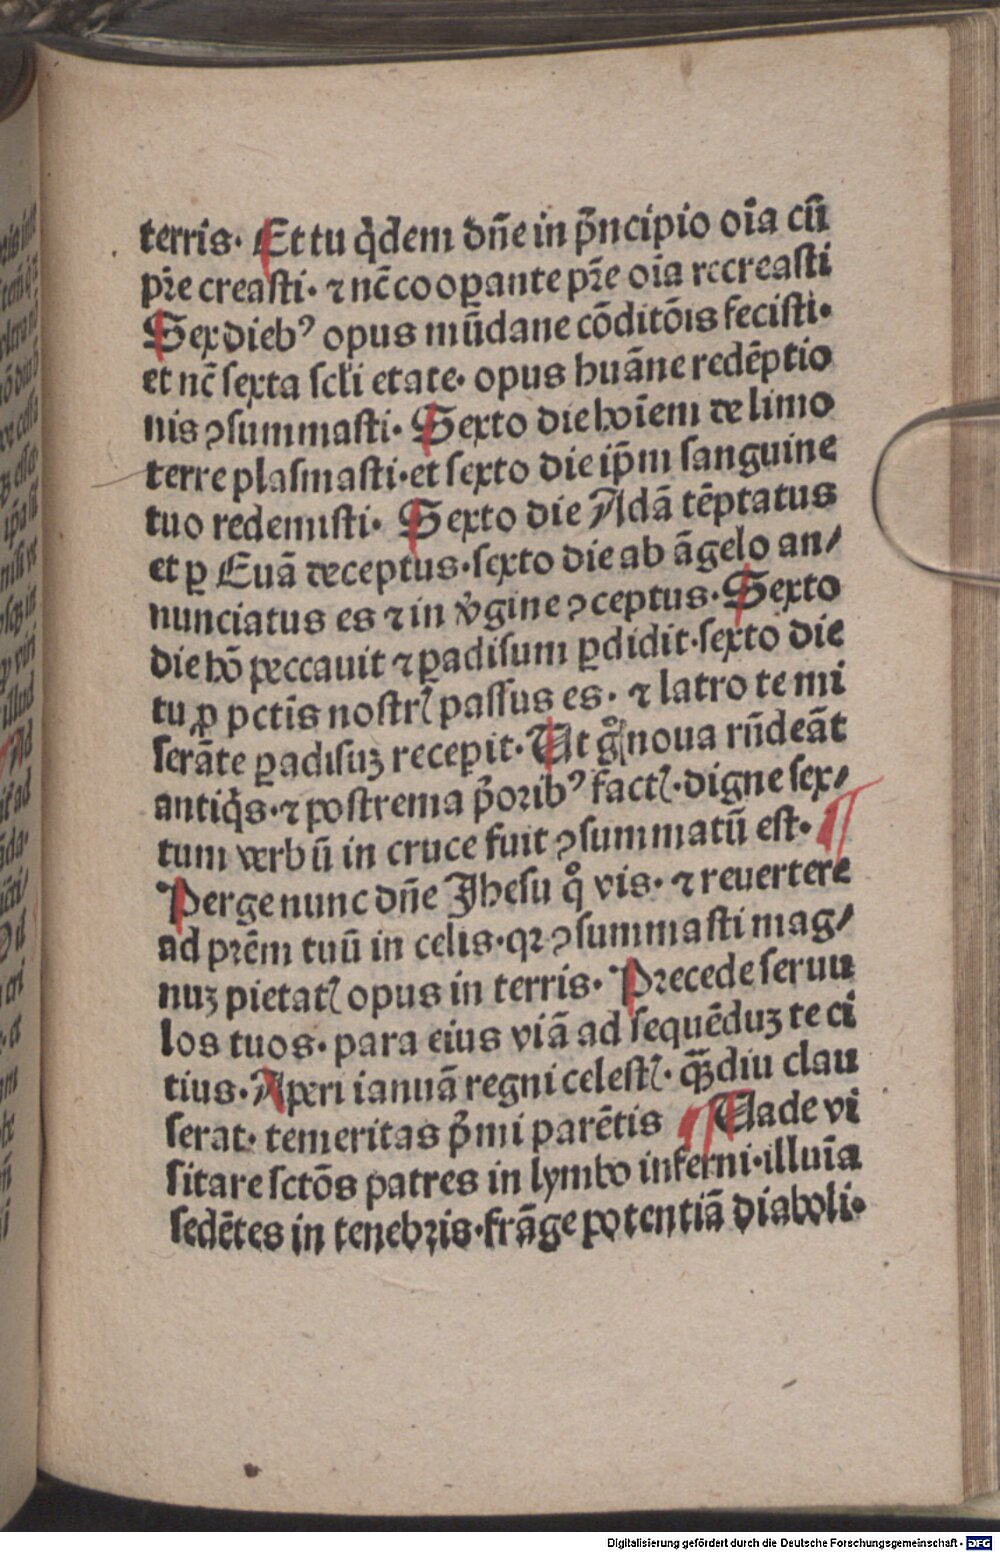 terris. Et tu q̇dem dn̄e in p̄ncipio oīa cū
pr̄e creasti. ⁊ nc̄ coopante pr̄e oīa recreasti
Sex dieb⁹ opus mūdane cōditōis fecisti.
et nc̄ sexta scł̄i etate. opus huāne redēptio
nis ꝯsummasti. Sexto die hoīem de limo
terre plasmasti. et sexto die ip̄m sanguine
tuo redemisti. Sexto die Adā tēptatus
et ꝑ Euā deceptus. sexto die ab āgelo an/
nunciatus es ⁊ in v̇gine ꝯceptus. Sexto
die hō peccauit ⁊ ꝑadisum ꝑdidit. sexto die
tu ꝓ pctīs nostrꝭ passus es. ⁊ latro te mi
serāte ꝑadisuꝫ recepit. Ut gͦ noua rn̄deāt
antiq̇s. ⁊ postrema p̄orib⁹ factꝭ. digne sex/
tum verbū in cruce fuit ꝯsummatū est. ¶
Perge nunc dn̄e Jhesu qͦ vis. ⁊ reuertere
ad pr̄em tuū in celis. qꝛ ꝯsummasti mag/
nuꝫ pietatꝭ opus in terris. Precede seruu
los tuos. para eius viā ad sequēduꝫ te ci
tius. Aperi ianuā regni celestꝭ. q̄ꝫdiu clau
serat. temeritas p̄mi parētis ¶ Uade vi
sitare sctōs patres in lymbo inferni. illuīa
sedētes in tenebris. frāge potentiā diaboli.
Digitalisierung gefördert durch die Deutsche Forschungsgemeinschaft - DFG